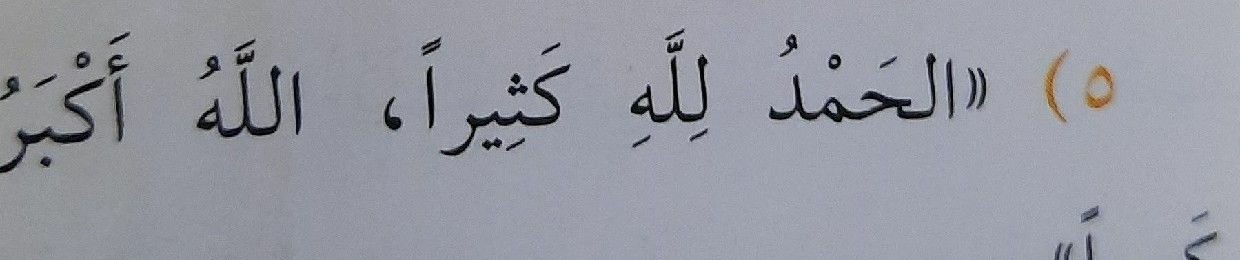 ٥) «الحَمْدُ لِلَّهِ كَثِيراً، اللَّهُ أَكْبَرُ